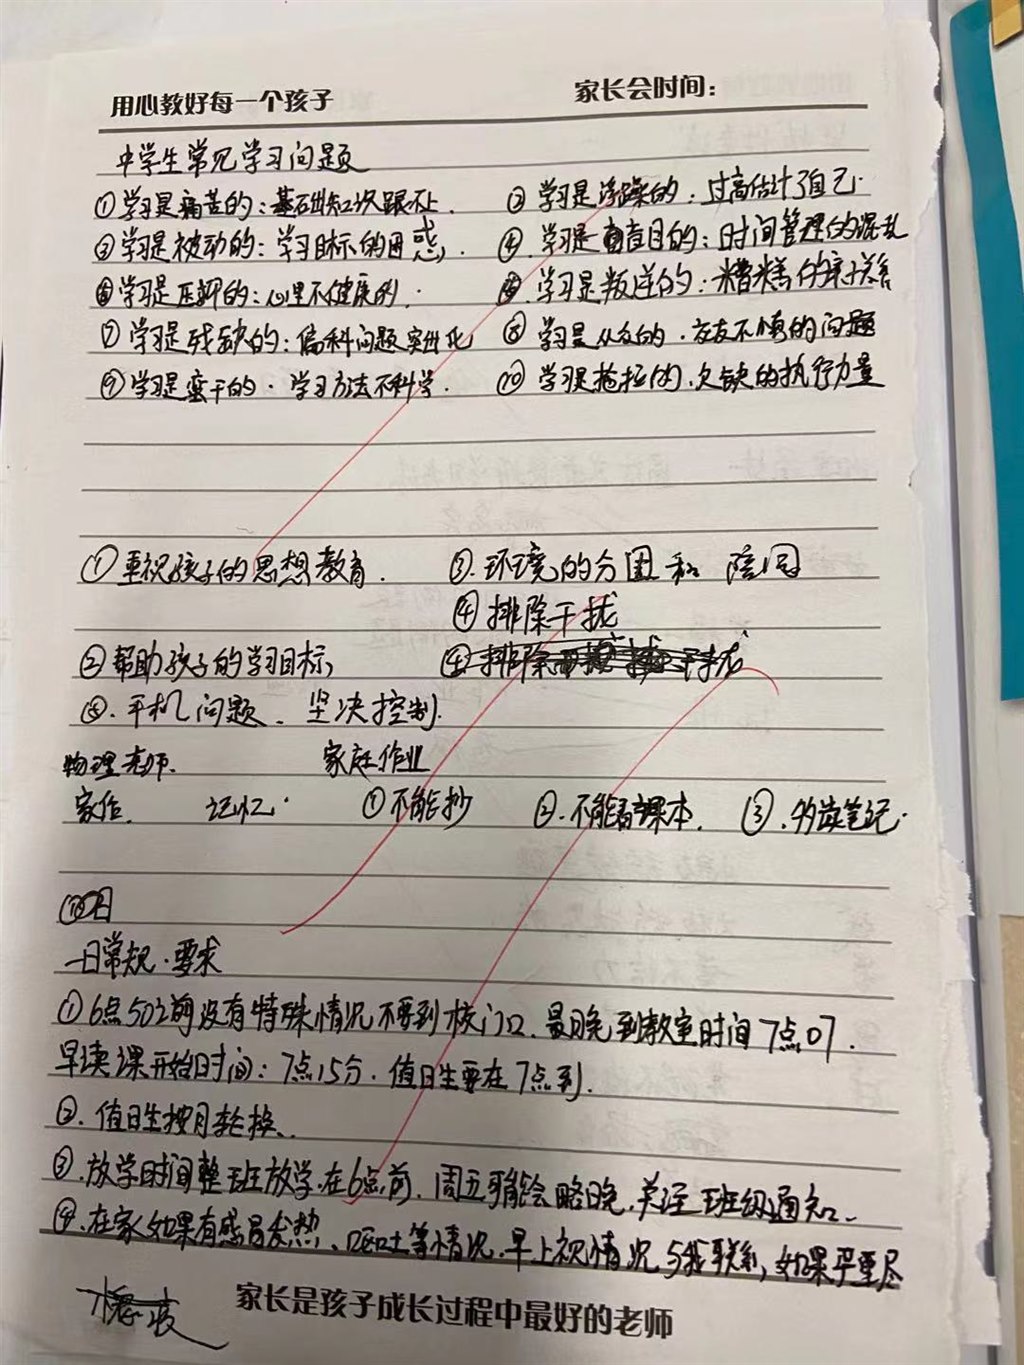 用心教好每一个孩子 家长会时间：
中学生常见学习问题
①学习是痛苦的：基础知识跟不上. ②学习是浮躁的：过高估计了自己.
③学习是被动的：学习目标的困惑. ④学习是盲目的：时间管理的混乱
⑤学习是压抑的：心里不健康的. ⑥学习是叛逆的：糟糕的亲子关
⑦学习是残缺的：偏科问题突出化 ⑧学习是从众的.交友不慎的问题
⑨学习是蛮干的.学习方法不科学. ⑩学习是拖拉的.欠缺的执行力量
①重视孩子的思想教育. ③.环境的分围和陪同
④排除干扰
②帮助孩子的学习目标,
⑤.手机问题、坚决控制.
物理老师. 家庭作业
家作. 记忆. ①不能抄 ②.不能看课本. ③.读笔记.
一日常规.要求
①6点50之前没有特殊情况不要到校门口.最晚到教室时间7点07.
早读课开始时间：7点15分.值日生要在7点到.
②.值日生按月轮换.
③.放学时间整班放学.在6点前.周五可能会略晚.关注班级通知.
④.在家如果有感冒发热、呕吐等情况.早上视情况与我联系,如果严重尽
家长是孩子成长过程中最好的老师